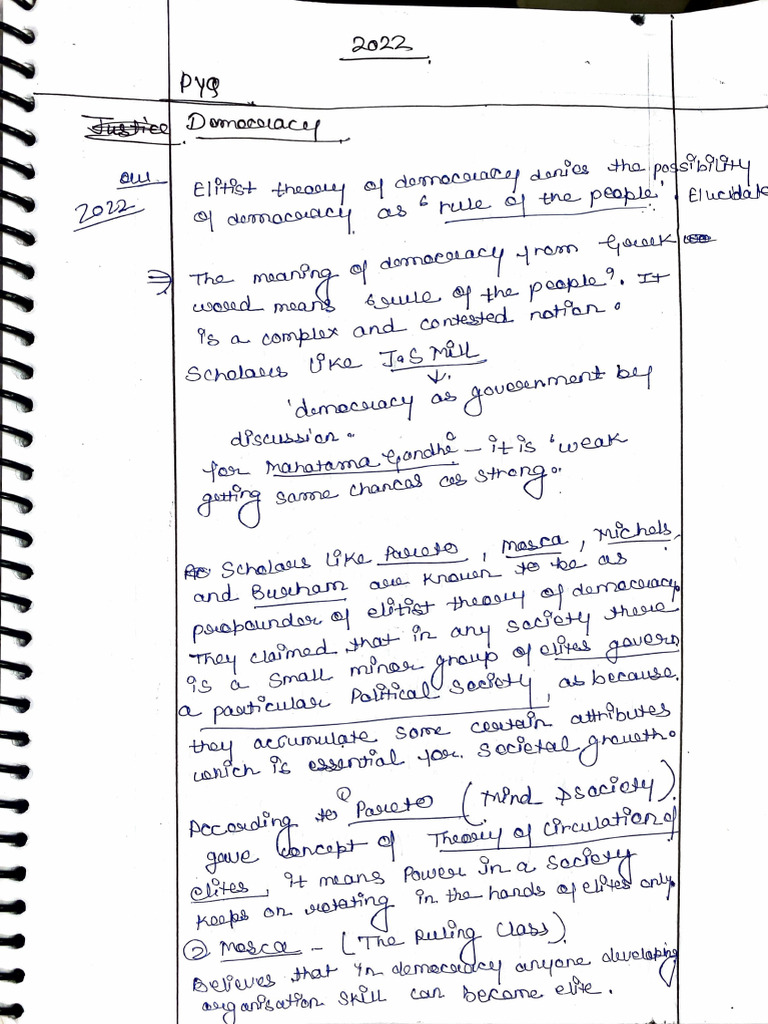 2022
PYQ
Justice Democracy
2022
Elitist theory of democracy denies the possibility
of democracy as 'rule of the people'. Elucidate
⇒ The meaning of democracy from Greek
word means 'rule of the people'. It
is a complex and contested notion.
Scholars like J.S Mill
↓
'democracy as government by
discussion.
for Mahatama Gandhi – it is 'weak
getting same chances as strong.
Scholars like Pareto, Mosca, Michels,
and Burham are known to be as
propounder of elitist theory of democracy.
They claimed that in any society there
is a small minor group of elites govern
a particular Political Society, as because.
they accumulate some certain attributes
which is essential for. Societal growth.
According to ① Pareto (Mind & society)
gave concept of Theory of Circulation of
elites, it means Power in a society
keeps on rotating in the hands of elites only.
② Mosca – (The Ruling Class)
Believes that in democracy anyone developing
organisation skill can become elite.